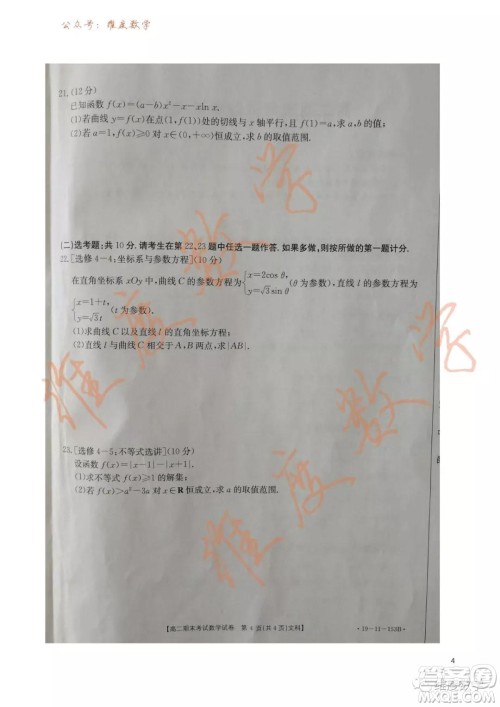 公众号：维度数学
21.(12分)
已知函数 f(x)=(a-b)x²-x-xln x.
(1)若曲线 y=f(x)在点(1,f(1))处的切线与 x 轴平行,且 f(1)=a,求 a,b 的值;
(2)若 a=1,f(x)≥0 对 x∈(0,+∞)恒成立,求 b 的取值范围.
(二)选考题:共 10 分.请考生在第 22,23 题中任选一题作答.如果多做,则按所做的第一题计分.
22.[选修 4-4:坐标系与参数方程](10分)
在直角坐标系 xOy 中,曲线 C 的参数方程为{x=2cos θ, y=√3sin θ (θ 为参数),直线 l 的参数方程为
{x=1+t, y=√3t (t 为参数).
(1)求曲线 C 以及直线 l 的直角坐标方程;
(2)直线 l 与曲线 C 相交于 A,B 两点,求|AB|.
23.[选修 4-5:不等式选讲](10分)
设函数 f(x)=|x-1|-|x+3|.
(1)求不等式 f(x)≥1 的解集;
(2)若 f(x)>a²-3a 对 x∈R 恒成立,求 a 的取值范围.
维度数学
【高二期末考试数学试卷 第 4 页(共 4 页)文科】
4